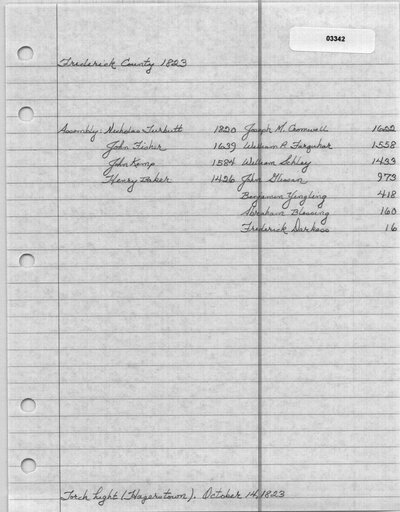 03342
Frederick County 1823
Assembly: Nicholas Turbutt 1820 Joseph M. Cromwell 1622
John Fisher 1639 William P. Farquhar 1558
John Kemp 1584 William Schley 1433
Henry Baker 1426 John Glisan 973
Benjamin Yingling 418
Abraham Blessing 160
Frederick Darkess 16
Torch Light (Hagerstown), October 14, 1823